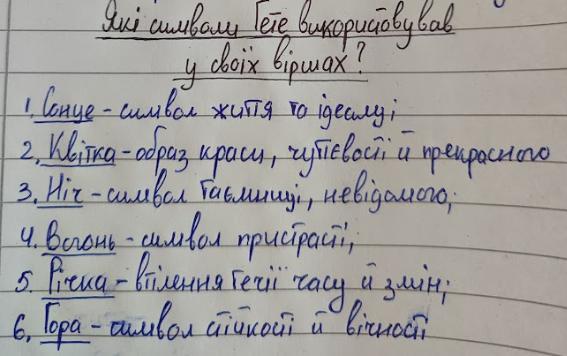 Які символи Гете використовував
у своїх віршах?
1. Сонце - символ життя та ідеалу;
2. Квітка - образ краси, чуттєвості й прекрасного
3. Ніч - символ таємниці, невідомого;
4. Вогонь - символ пристрасті;
5. Річка - втілення течії часу й змін;
6. Гора - символ стійкості й вічності